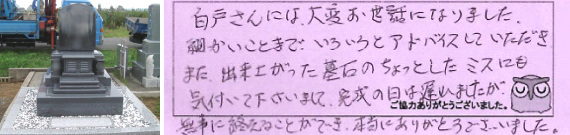 白戸さんには、大変お世話になりました。
細かいことまで、いろいろとアドバイスしていただき
また、出来上がった墓石のちょっとしたミスにも
気付いて下さいまして、完成の日は遅れましたが、
ご協力ありがとうございました。
無事に終えることができ、本当にありがとうございました。